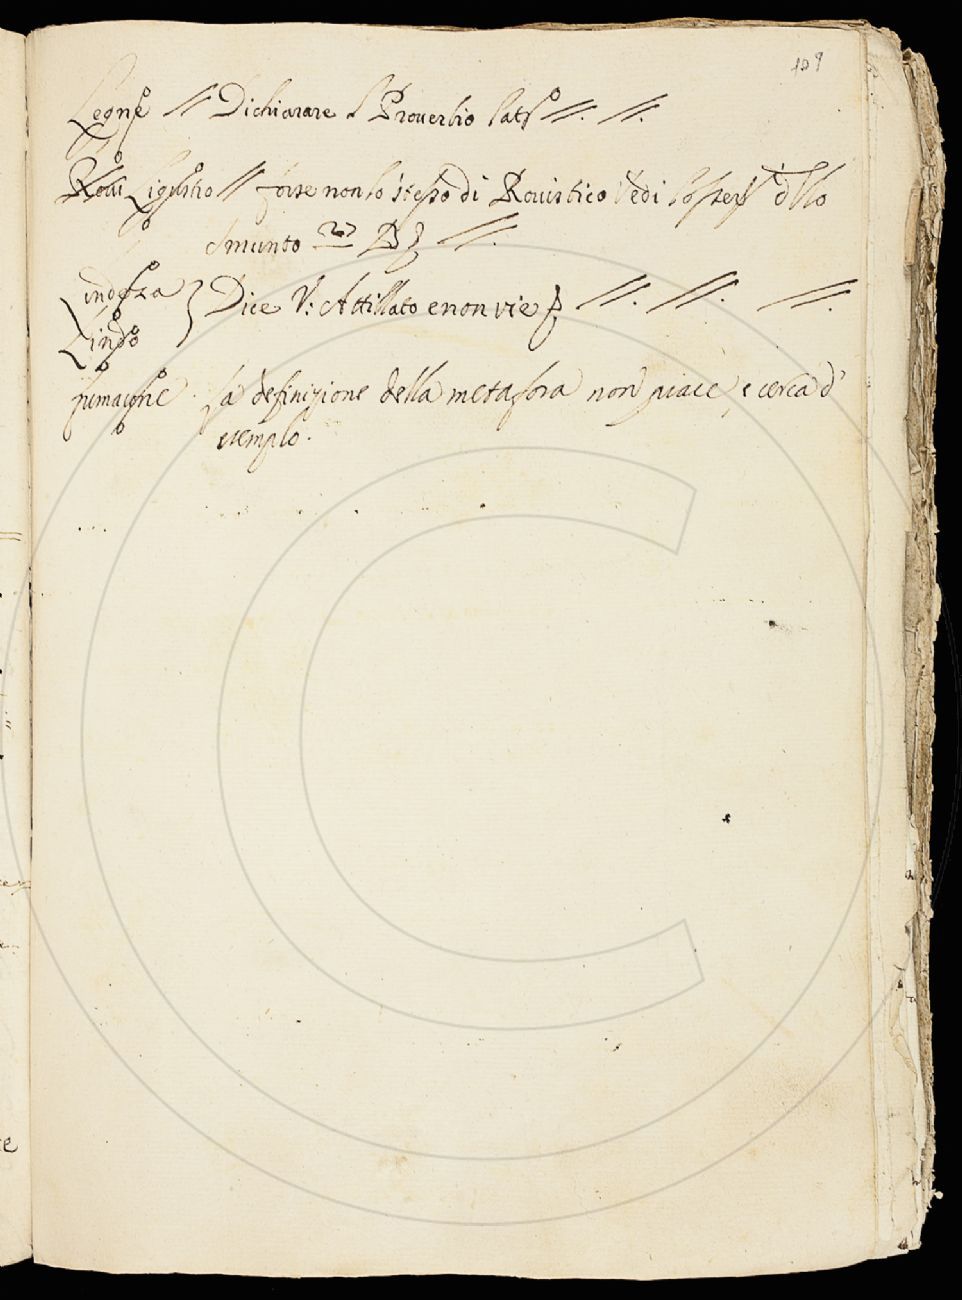 109
Legne // Dichiarare l Proverbio lat° //. //.
Ligustro // forse non lo stesso di Rovistico Vedi
smunto //.
Lindezza } Dice V: Attillato e non vie //. //. //.
Lindo
fumaiole la definizione della metafora non piace, e cerca d'
esemplo.